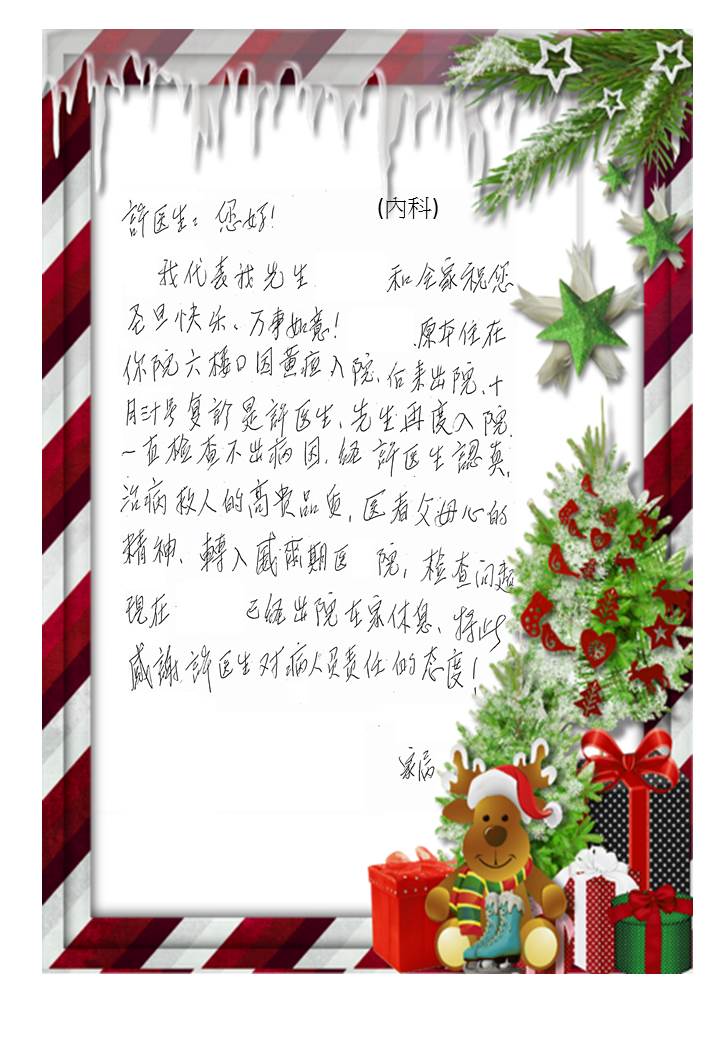 許医生：您好！ (內科)
我代表我先生 和全家祝您
圣旦快乐、万事如意！ 原本住在
你院六楼D因黄疸入院、后来出院、十
月三十号复診是許医生、先生再度入院、
一直检查不出病因、经許医生認真、
治病救人的高贵品质，医者父母心的
精神、轉入威爾斯医 院，检查问题
现在 已经出院在家休息、特此
感謝許医生对病人负责任的态度！
家属